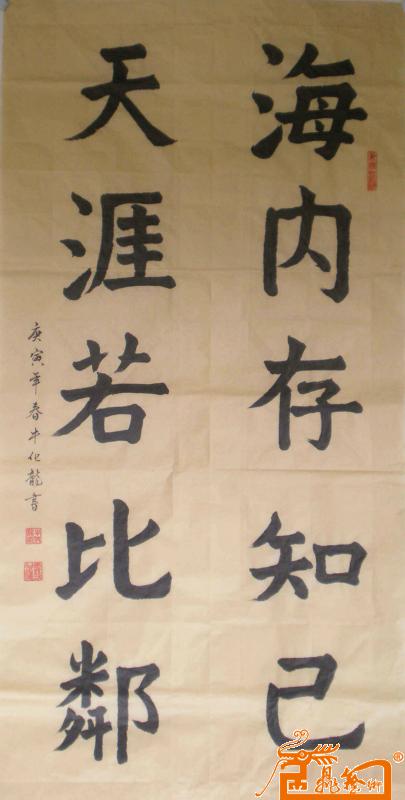 海内存知己
天涯若比鄰
庚寅年春牛化龍書